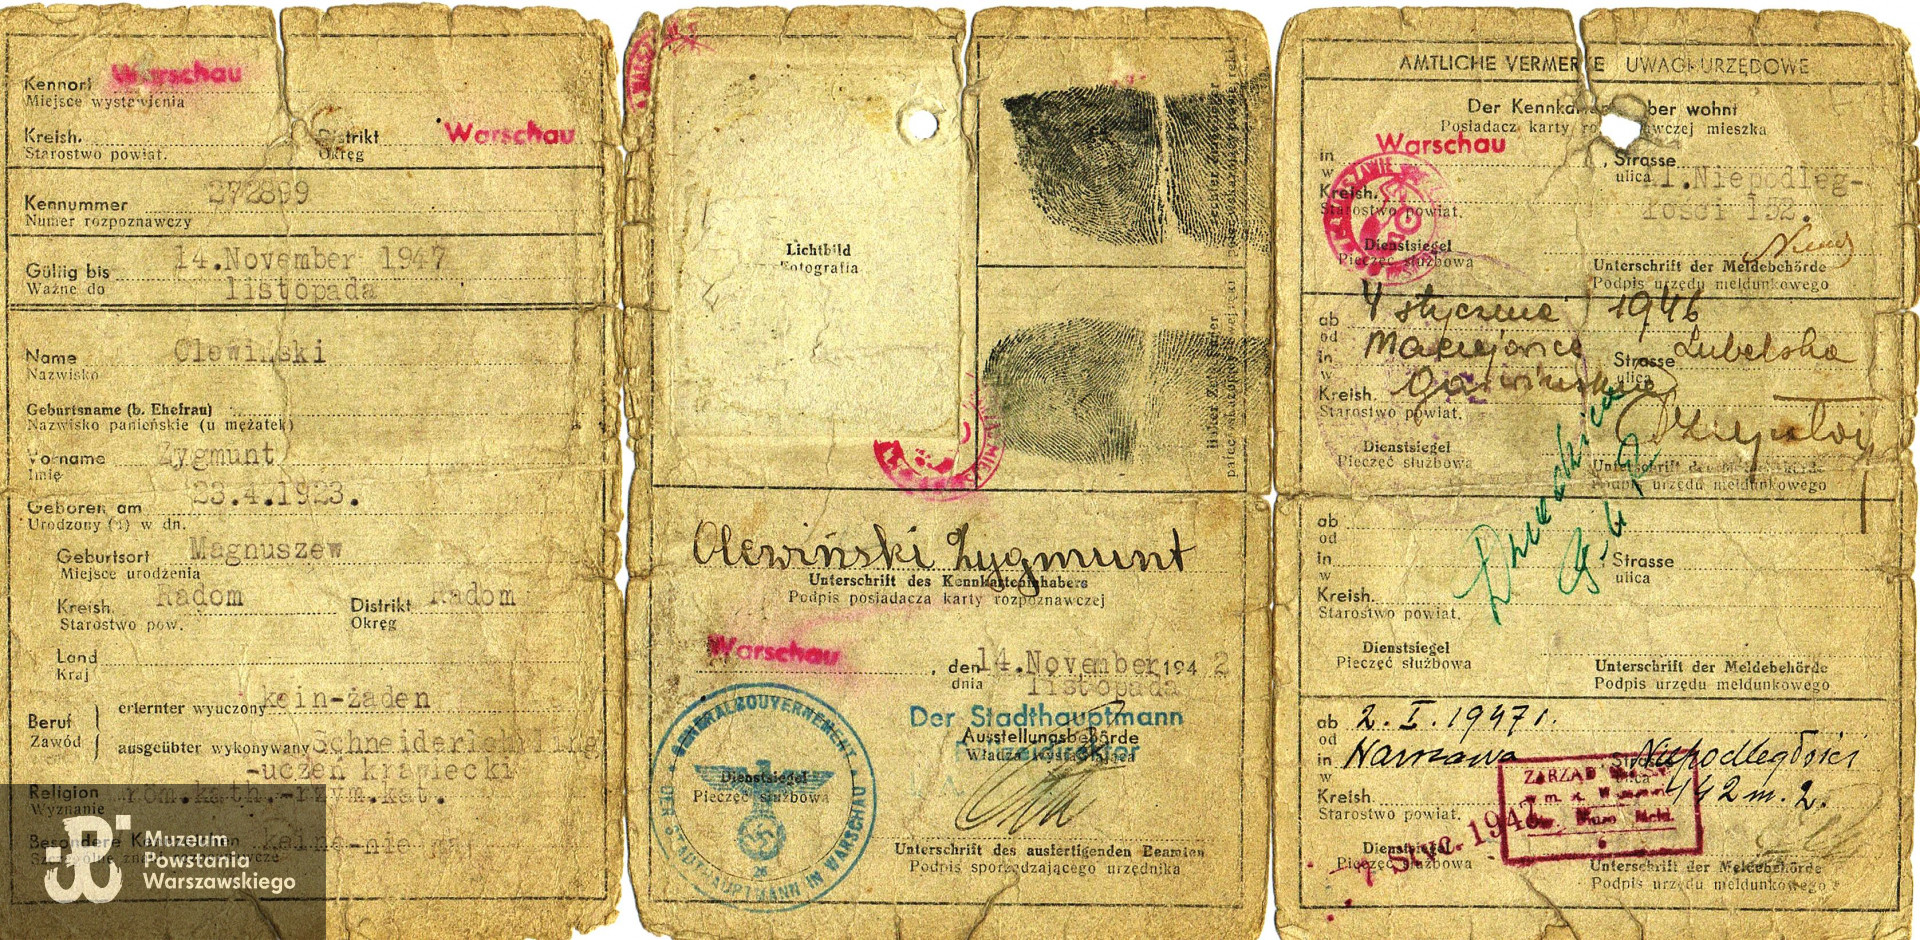 Kennort Warschau
Miejsce wystawienia
Kreish. Distrikt Warschau
Starostwo powiat. Okręg
Kennummer 272899
Numer rozpoznawczy
Gültig bis 14.November 1947
Ważne do listopada
Name Olewiński
Nazwisko
Geburtsname (b. Ehefrau)
Nazwisko panieńskie (u mężatek)
Vorname Zygmunt
Imię
Geboren am 23.4.1923.
Urodzony (a) w dn.
Geburtsort Magnuszew
Miejsce urodzenia
Kreish. Radom Distrikt Radom
Starostwo pow. Okręg
Land
Kraj
Beruf erlernter wyuczony kein-żaden
Zawód ausgeübter wykonywany Schneiderlehrling
-uczeń krawiecki
Religion röm.kath.-rzym.kat.
Wyznanie
Besondere keine-nie ma
Muzeum
Powstania
Warszawskiego
Lichtbild
Fotografia
Olewiński Zygmunt
Unterschrift des Kennkarteninhabers
Podpis posiadacza karty rozpoznawczej
Warschau, den 14.November 1942
dnia listopada
Der Stadthauptmann
Ausstellungsbehörde
Polizeidirektor
Władza wystawiająca
GENERALGOUVERNEMENT
DER STADTHAUPTMANN IN WARSCHAU
Dienstsiegel
Pieczęć służbowa
26
Unterschrift des ausfertigenden Beamten
Podpis sporządzającego urzędnika
AMTLICHE VERMERKE UWAGI URZĘDOWE
Der Kennkarteninhaber wohnt
Posiadacz karty rozpoznawczej mieszka
in Warschau, Strasse
w ulica Al.Niepodleg-
Kreish. łości 132.
Starostwo powiat.
Dienstsiegel
Pieczęć służbowa
Unterschrift der Meldebehörde
Podpis urzędu meldunkowego
ab 4 stycznia 1946
od
in Maciejowice Strasse Lubelska
w ulica
Kreish. Garwolińskie
Starostwo powiat.
Dienstsiegel
Pieczęć służbowa
Unterschrift der Meldebehörde
Podpis urzędu meldunkowego
ab
od
in Strasse
w ulica
Kreish.
Starostwo powiat.
Dienstsiegel
Pieczęć służbowa
Unterschrift der Meldebehörde
Podpis urzędu meldunkowego
ab 2. I. 1947 r.
od
in Warszawa, Strasse Niepodległości
w ulica
Kreish. 142 m. 2.
Starostwo powiat.
ZARZĄD
Meld.
7 STYC. 1947
Dienstsiegel
Pieczęć służbowa
Unterschrift der Meldebehörde
Podpis urzędu meldunkowego